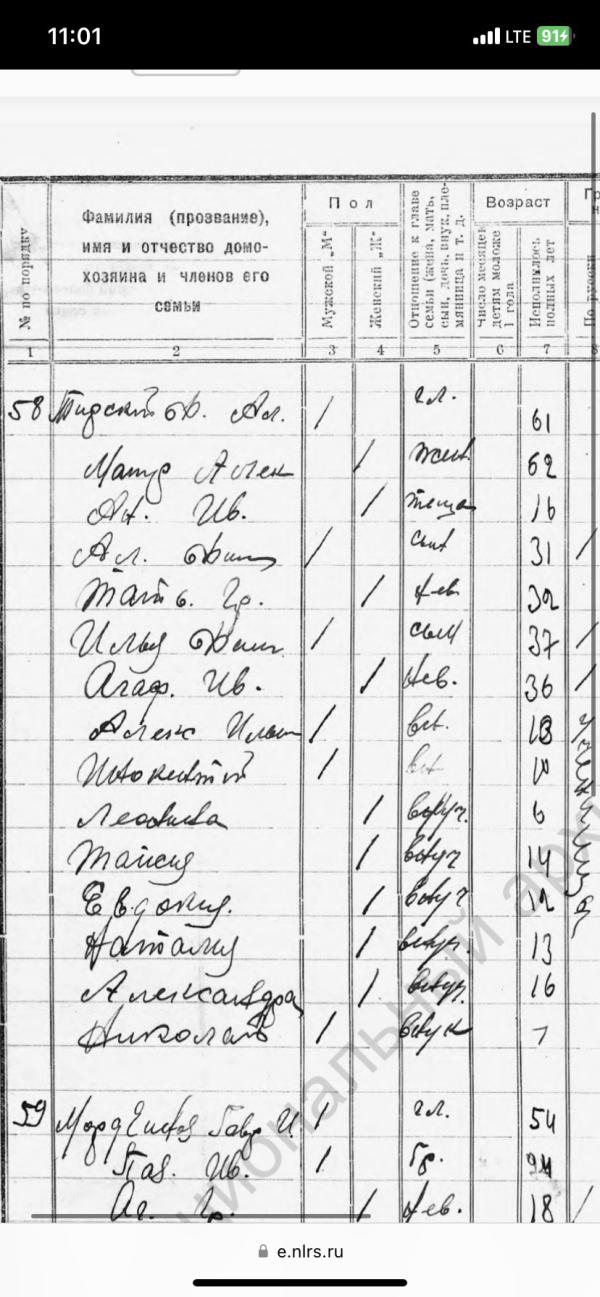 11:01 LTE 91
№ по порядку
Фамилия (прозвание),
имя и отчество домо-
хозяина и членов его
семьи
Пол
Мужской „М"
Женский „Ж"
Отношение к главе
семьи (жена, мать,
сын, дочь, внук, пле-
мянница и т. д.
Возраст
Число месяцев
детям моложе
1 года
Исполнилось
полных лет
По русски
1 2 3 4 5 6 7 8
58 Ал. / гл. 61
Алек / жен 62
Ан. Ив. / теща
Ал. / сын 31 /
Гр. / нев.
Илья / сын 37 /
Агаф. Ив. / нев. 36 /
Алекс Ильич / вн.
Иннокентий / вн 10
/ внуч. 6
Таисия / внуч 14
Евдокия. / внуч 12
Наталия / внуч. 13
Александра / внуч. 16
Николай / внук 7
59 Гавр. И. / гл. 54
Пав. Ив. / бр.
Аг. Гр. / нев. 18 /
национальный архи
e.nlrs.ru